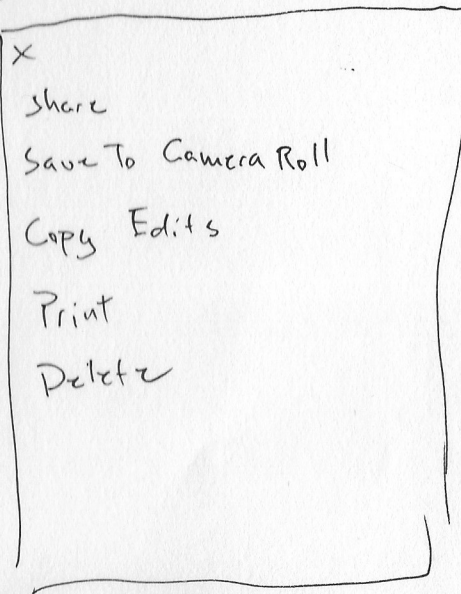 X
Share
Save To Camera Roll
Copy Edits
Print
Delete